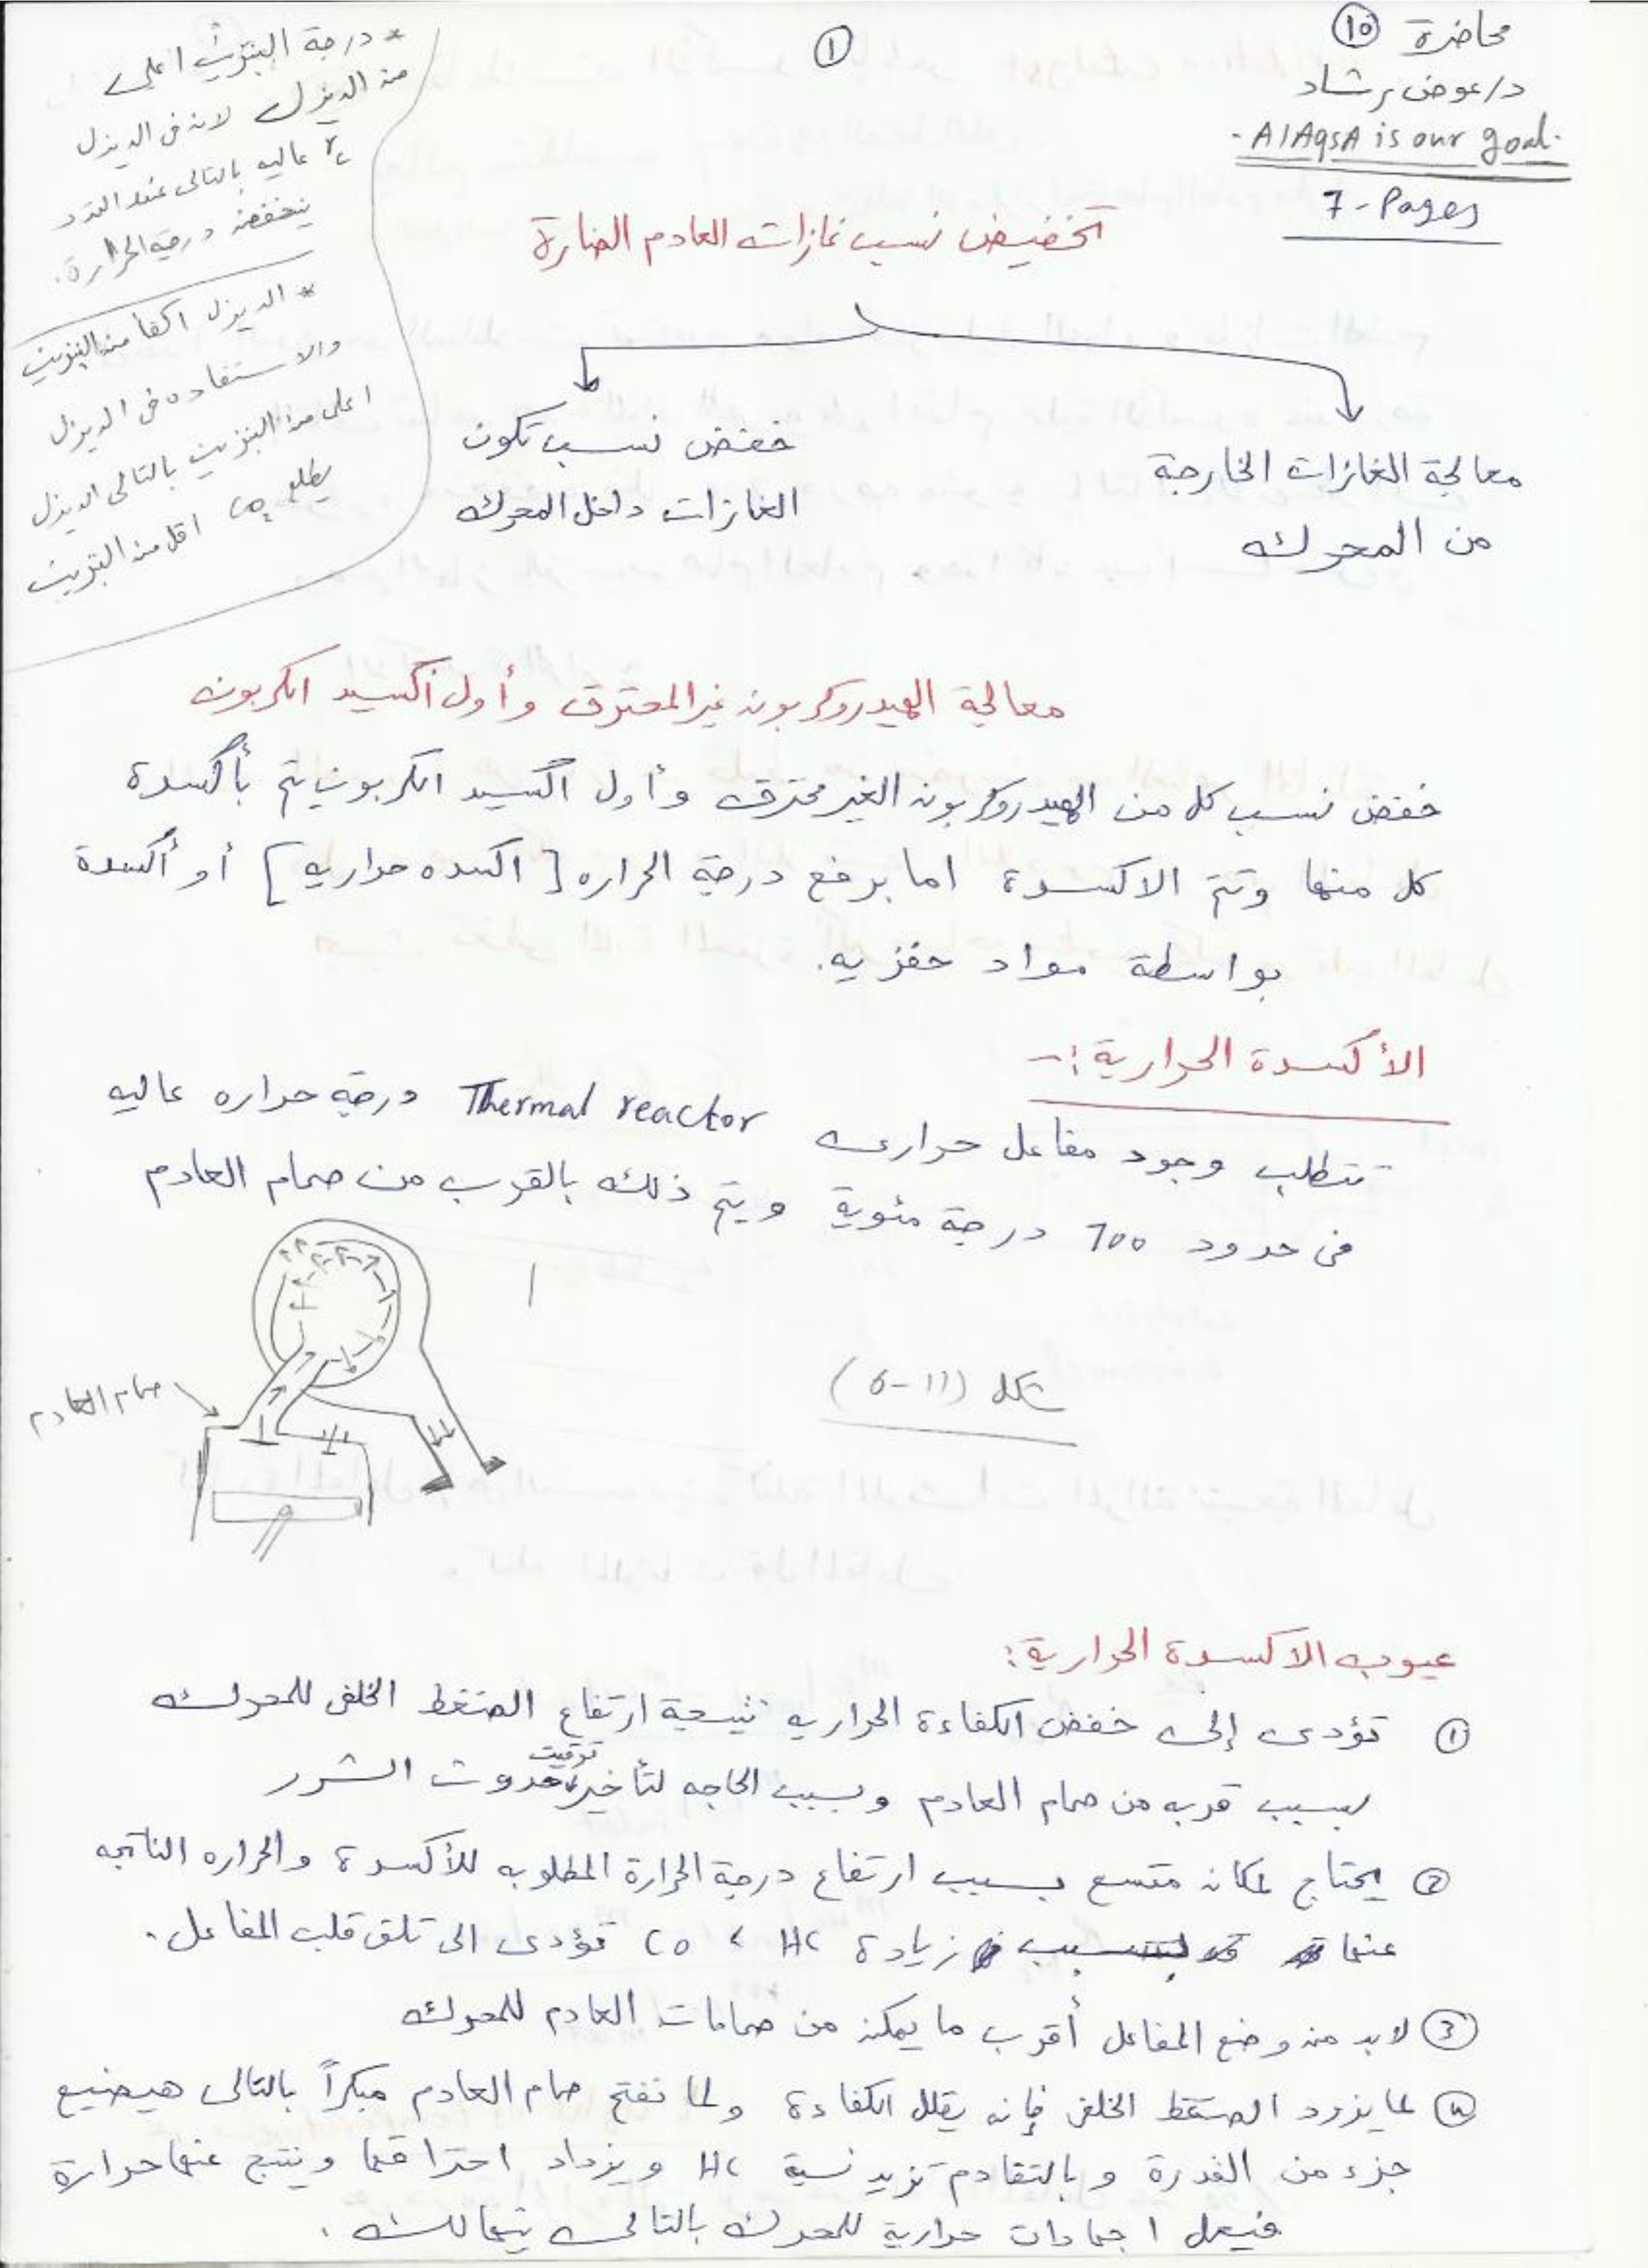 محاضرة 10
د/عوض رشاد
- AlAqsA is our goal -
7-Pages
1
* درجة البنزين أعلى
من الديزل لانه فى الديزل
rc عاليه بالتالى عند التمدد
ينخفض درجة الحرارة.
* الديزل اكفأ من البنزين
والاستفاده فى الديزل
اعلى من البنزين بالتالى الديزل
يطلع CO2 اقل من البنزين
تخفيض نسب غازات العادم الضارة
معالجة الغازات الخارجة
من المحرك
خفض نسب تكون
الغازات داخل المحرك
معالجة الهيدروكربون غير المحترق وأول أكسيد الكربون
خفض نسب كل من الهيدروكربون الغير محترق وأول اكسيد الكربون يتم بأكسدة
كل منها وتتم الاكسدة اما برفع درجة الحراره [اكسده حراريه] أو أكسدة
بواسطة مواد حفزيه.
الأكسدة الحرارية :-
تتطلب وجود مفاعل حرارى Thermal reactor درجة حراره عاليه
فى حدود 700 درجة مئوية ويتم ذلك بالقرب من صمام العادم
صمام العادم
شكل (11-6)
عيوب الاكسدة الحرارية:
1 تؤدى إلى خفض الكفاءة الحراريه نتيجة ارتفاع الضغط الخلفى للمحرك
بسبب قربه من صمام العادم وبسبب الحاجه لتأخير توقيت حدوث الشرر
2 يحتاج لمكان متسع بسبب ارتفاع درجة الحرارة المطلوبه للأكسدة والحراره الناتجه
عنها بسبب زيادة HC ، CO تؤدى الى تلف قلب المفاعل.
3 لابد من وضع المفاعل أقرب ما يمكن من صمامات العادم للمحرك
4 لما يزود الضغط الخلفى فإنه يقلل الكفاءة ولما نفتح صمام العادم مبكراً بالتالى هيضيع
جزء من القدرة وبالتقادم تزيد نسبة HC ويزداد احتراقها وينتج عنها حرارة
فيعمل اجهادات حرارية للمحرك بالتالى يتهالك.